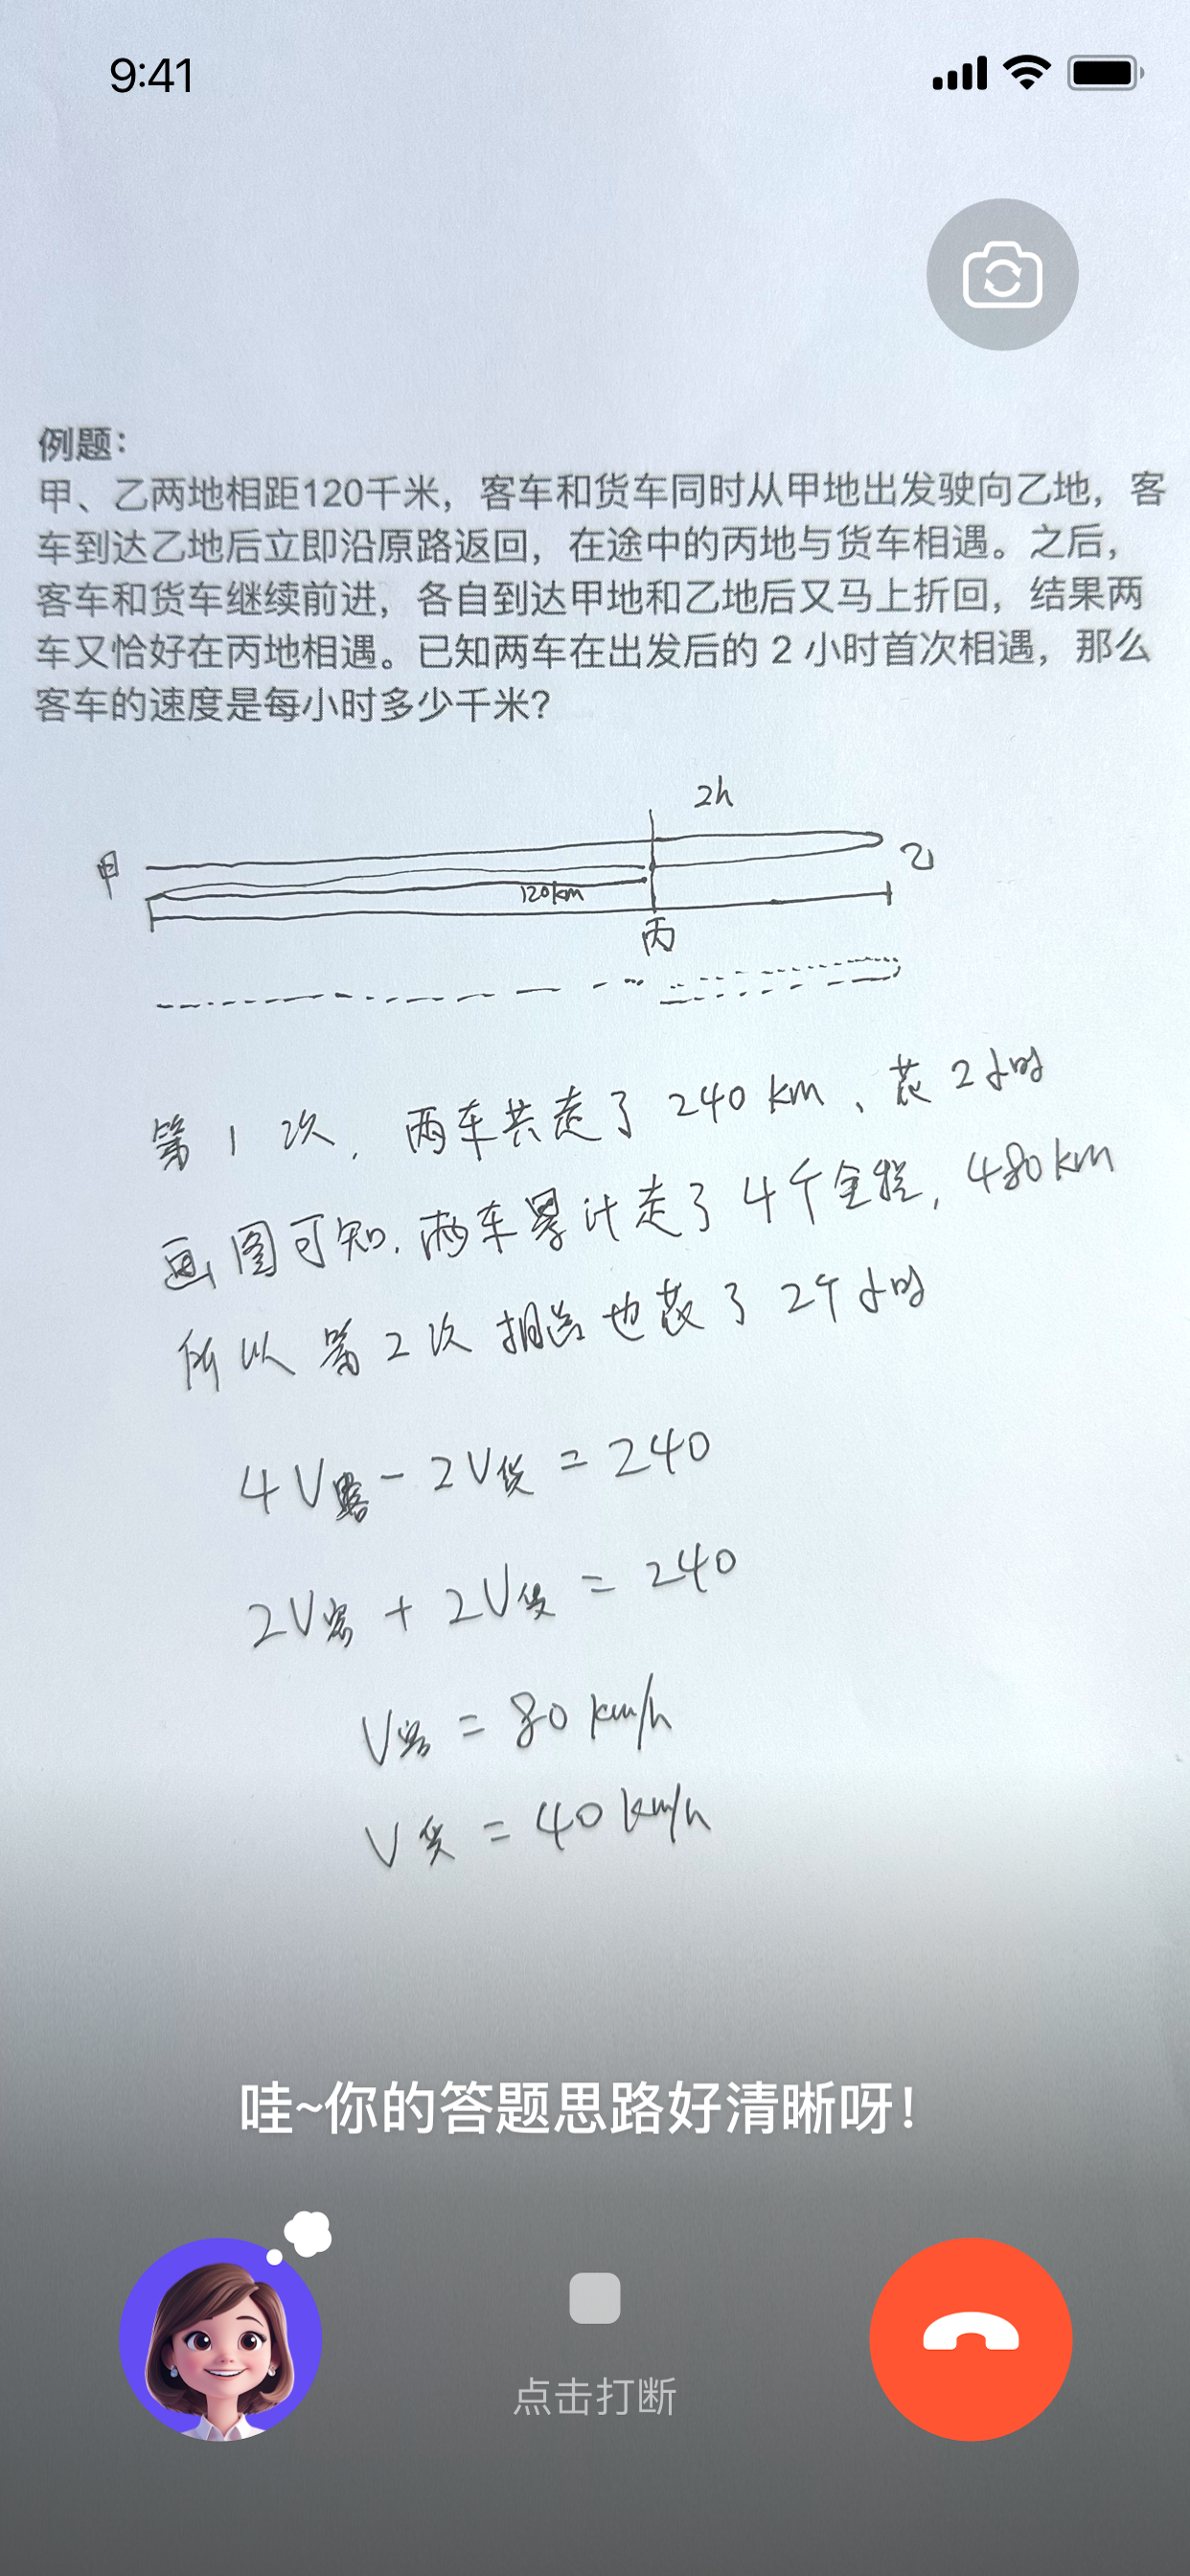 9:41
例题：
甲、乙两地相距120千米，客车和货车同时从甲地出发驶向乙地，客
车到达乙地后立即沿原路返回，在途中的丙地与货车相遇。之后，
客车和货车继续前进，各自到达甲地和乙地后又马上折回，结果两
车又恰好在丙地相遇。已知两车在出发后的 2 小时首次相遇，那么
客车的速度是每小时多少千米？
2h
甲
乙
120km
丙
第1次，两车共走了 240 km、花2小时
画图可知，两车累计走了4个全程，480km
所以第2次相遇也花了2个小时
4V客 - 2V货 = 240
2V客 + 2V货 = 240
V客 = 80 km/h
V货 = 40 km/h
哇~你的答题思路好清晰呀！
点击打断